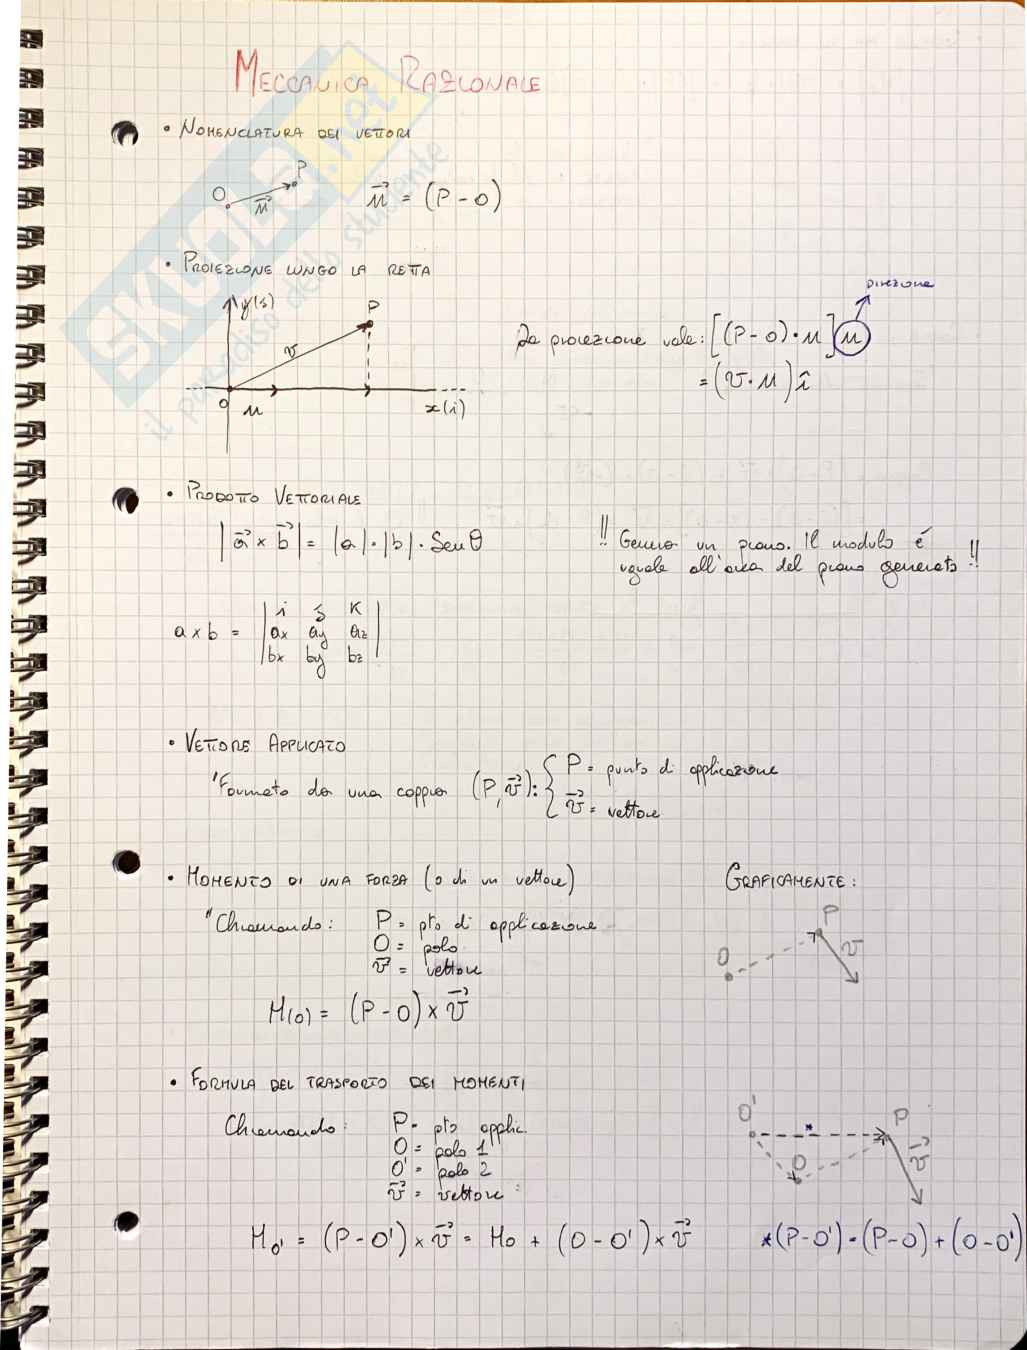 MECCANICA RAZIONALE
• NOMENCLATURA DEI VETTORI
O P u⃗ u⃗ = (P - O)
• PROIEZIONE LUNGO LA RETTA
direzione
y(j) P
v
La proiezione vale: [(P - O) • u] u
= (v • u) î
O u x(i)
• PRODOTTO VETTORIALE
|a⃗ × b⃗| = |a| • |b| • Sen θ
!! Genera un piano. Il modulo é
uguale all'area del piano generato !!
a × b = | i j K |
| ax ay az |
| bx by bz |
• VETTORE APPLICATO
"Formato da una coppia (P, v⃗): { P = punto di applicazione
v⃗ = vettore
• MOMENTO DI UNA FORZA (o di un vettore)
GRAFICAMENTE:
"Chiamando: P = pto di applicazione
O = polo
v⃗ = vettore
O P v
M(o) = (P - O) × v⃗
• FORMULA DEL TRASPORTO DEI MOMENTI
Chiamando: P = pto applic.
O = polo 1
O' = polo 2
v⃗ = vettore
O' * P
O v⃗
Mo' = (P - O') × v⃗ = Mo + (O - O') × v⃗
*(P - O') = (P - O) + (O - O')
SKUOLA.net
il paradiso dello studente